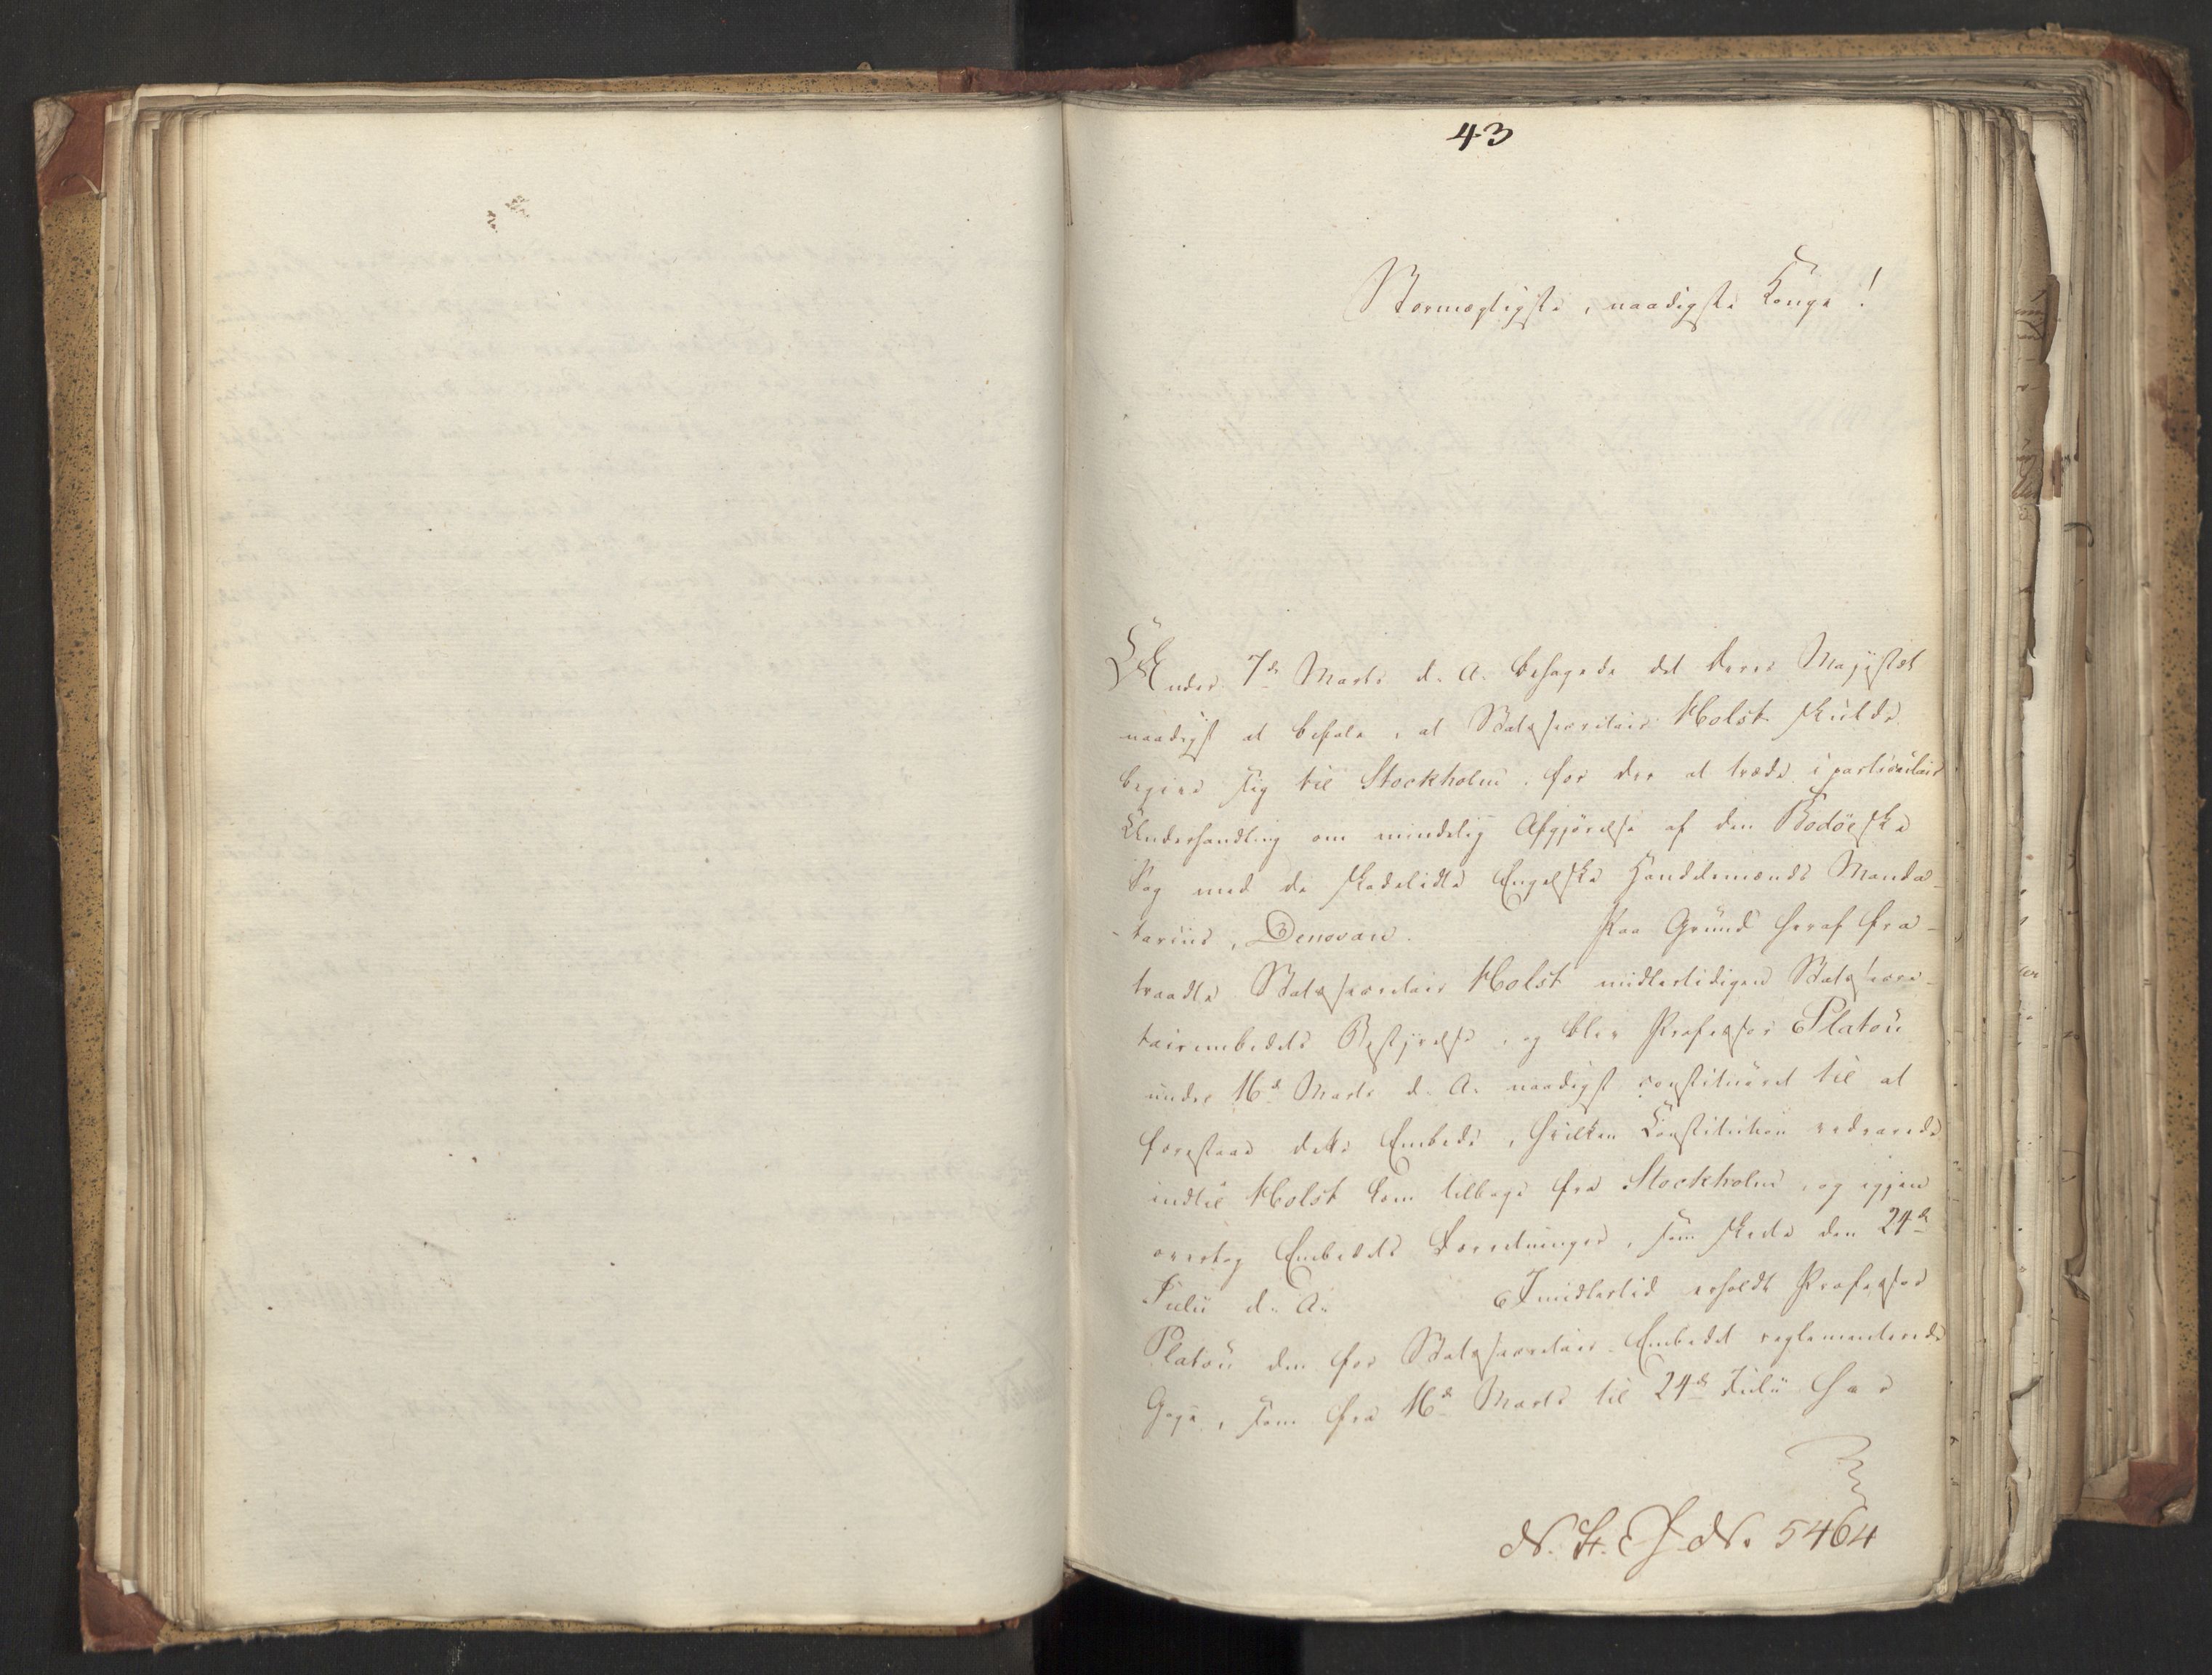 43
Stormægtigste, naadigste Konge!
Under 7de Marts d. A. behagede det Deres Majestæt
naadigst at befale, at Statssecretair Holst skulde
begive sig til Stockholm, for der at træde i particulair
Underhandling om mindelig Afgjørelse af den Bodöeske
Sag med de skadelidte Engelske Handelsmænds Manda-
-tarius, Denovan. Paa Grund heraf fra-
traadte Statssecretair Holst midlertidigen Statssecre-
tairembedets Bestyrelse, og blev Professor Platou
under 16de Marts d. A. naadigst constitueret til at
forestaae dette Embede, hvilken Constitution vedvarede
indtil Holst kom tilbage fra Stockholm, og igjen
overtog Embedets Forretninger, som skede den 24de
Julii d. A. Imidlertid erholdt Professor
Platou den for Statssecretair-Embedet reglementerede
Gage, som fra 16de Marts til 24de Julii har
N. St. E. J. No. 5464